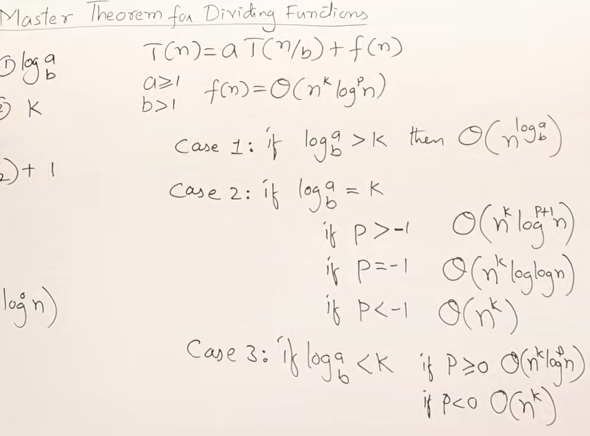 Master Theorem for Dividing Functions
T(n) = a T(n/b) + f(n)
① log_b a
a ≥ 1
b > 1
f(n) = O(n^k log^p n)
② K
Case 1: if log_b a > K then O(n^(log_b a))
2) + 1
Case 2: if log_b a = K
if P > -1 O(n^k log^(p+1) n)
if P = -1 O(n^k log log n)
log° n)
if P < -1 O(n^k)
Case 3: if log_b a < K if P ≥ 0 O(n^k log^p n)
if P < 0 O(n^k)